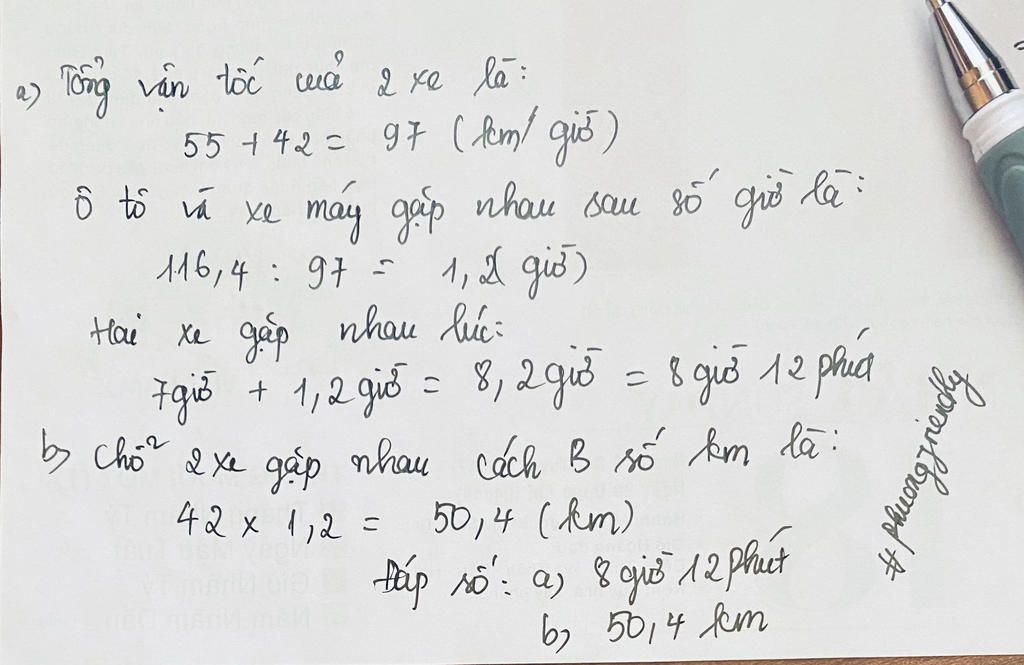 a) Tổng vận tốc của 2 xe là:
55 + 42 = 97 (km/ giờ)
Ô tô và xe máy gặp nhau sau số giờ là:
116,4 : 97 = 1,2( giờ)
Hai xe gặp nhau lúc:
7giờ + 1,2giờ = 8,2giờ = 8 giờ 12 phút
b) Chỗ 2 xe gặp nhau cách B số km là:
42 x 1,2 = 50,4 (km)
Đáp số: a) 8 giờ 12 phút
b) 50,4 km
#phuongfriendly